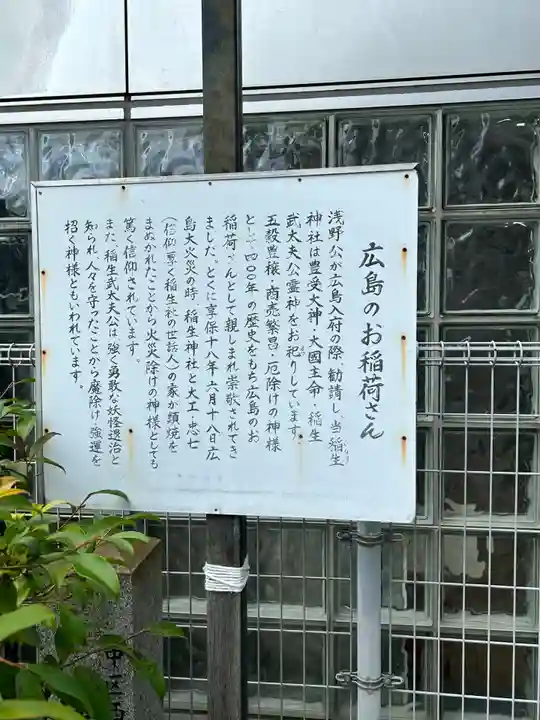 広島のお稲荷さん
浅野公が広島入府の際勧請し、当稲生
神社は豊受大神・大國主命・稲生
武太夫公霊神をお祀りしています。
五穀豊穣、商売繁昌・厄除けの神様
として四〇〇年の歴史をもち広島のお
稲荷さんとして親しまれ崇敬されてき
ました。とくに享保十八年六月十八日広
島大火災の時、稲生神社と大工・忠七
(信仰篤く稲生社の世話人)の家が類焼を
まぬがれたことから火災除けの神様としても
篤く信仰されています。
また、稲生武太夫公は強く勇敢な妖怪退治と
知られ、人々を守ったことから魔除け・強運を
招く神様ともいわれています。